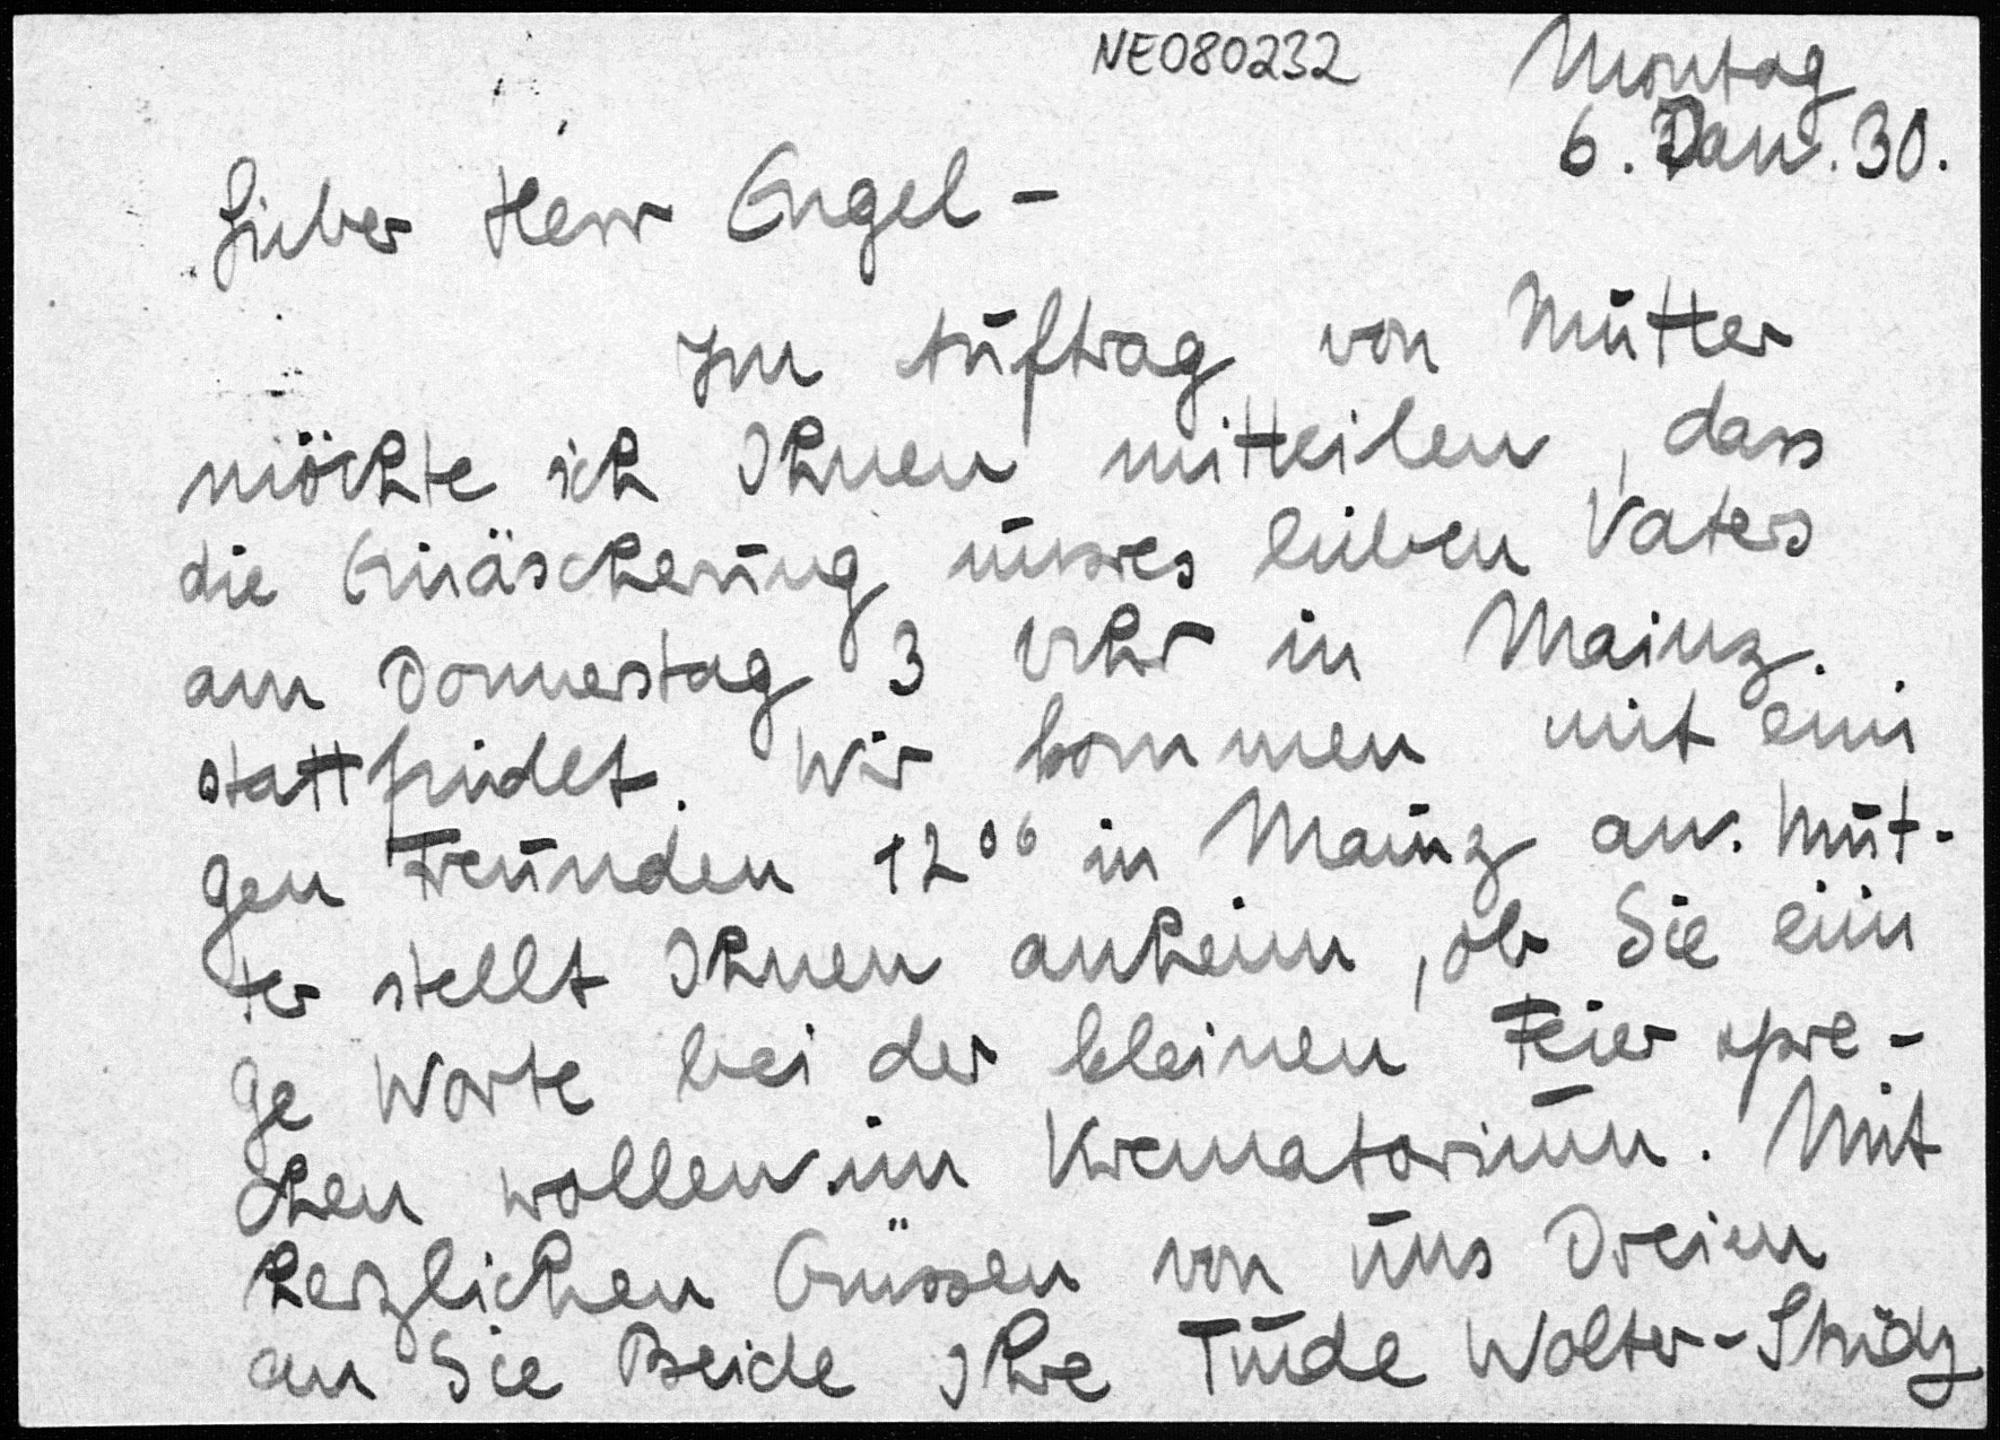 NE080232
Montag
6. Jan. 30.
Lieber Herr Engel -
Im Auftrag von Mutter
möchte ich Ihnen mitteilen, dass
die Einäscherung unsres lieben Vaters
am Donnerstag 3 Uhr in Mainz
stattfindet. Wir kommen mit eini
gen Freunden 12⁰⁶ in Mainz an. Mut-
ter stellt Ihnen anheim, ob Sie eini
ge Worte bei der kleinen Feier spre-
chen wollen im Krematorium. Mit
herzlichen Grüssen von uns Dreien
an Sie Beide Ihre Tude Wolter-